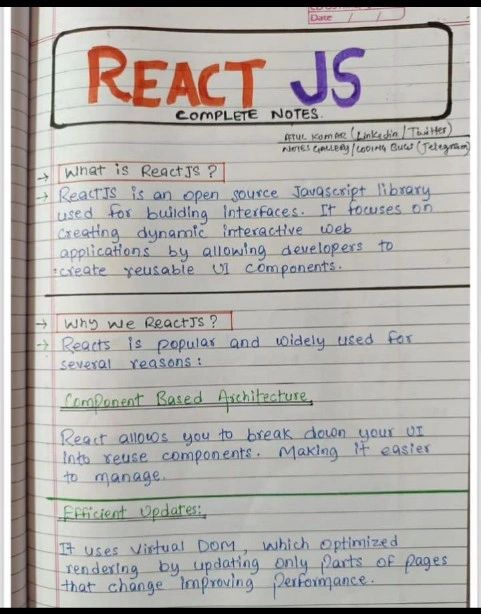 Date / /
REACT JS
COMPLETE NOTES.
ATUL KUMAR (Linkedin / Twitter)
NOTES GALLERY / CODING BUGS (Telegram)
→ What is ReactJS ?
→ ReactJS is an open source Javascript library
used for building interfaces. It focuses on
creating dynamic interactive web
applications by allowing developers to
create reusable UI components.
→ Why we ReactJS ?
→ Reacts is popular and widely used for
several reasons :
Component Based Architecture
React allows you to break down your UI
into reuse components. Making it easier
to manage.
Efficient Updates:
It uses Virtual DOM, which optimized
rendering by updating only parts of pages
that change improving performance.